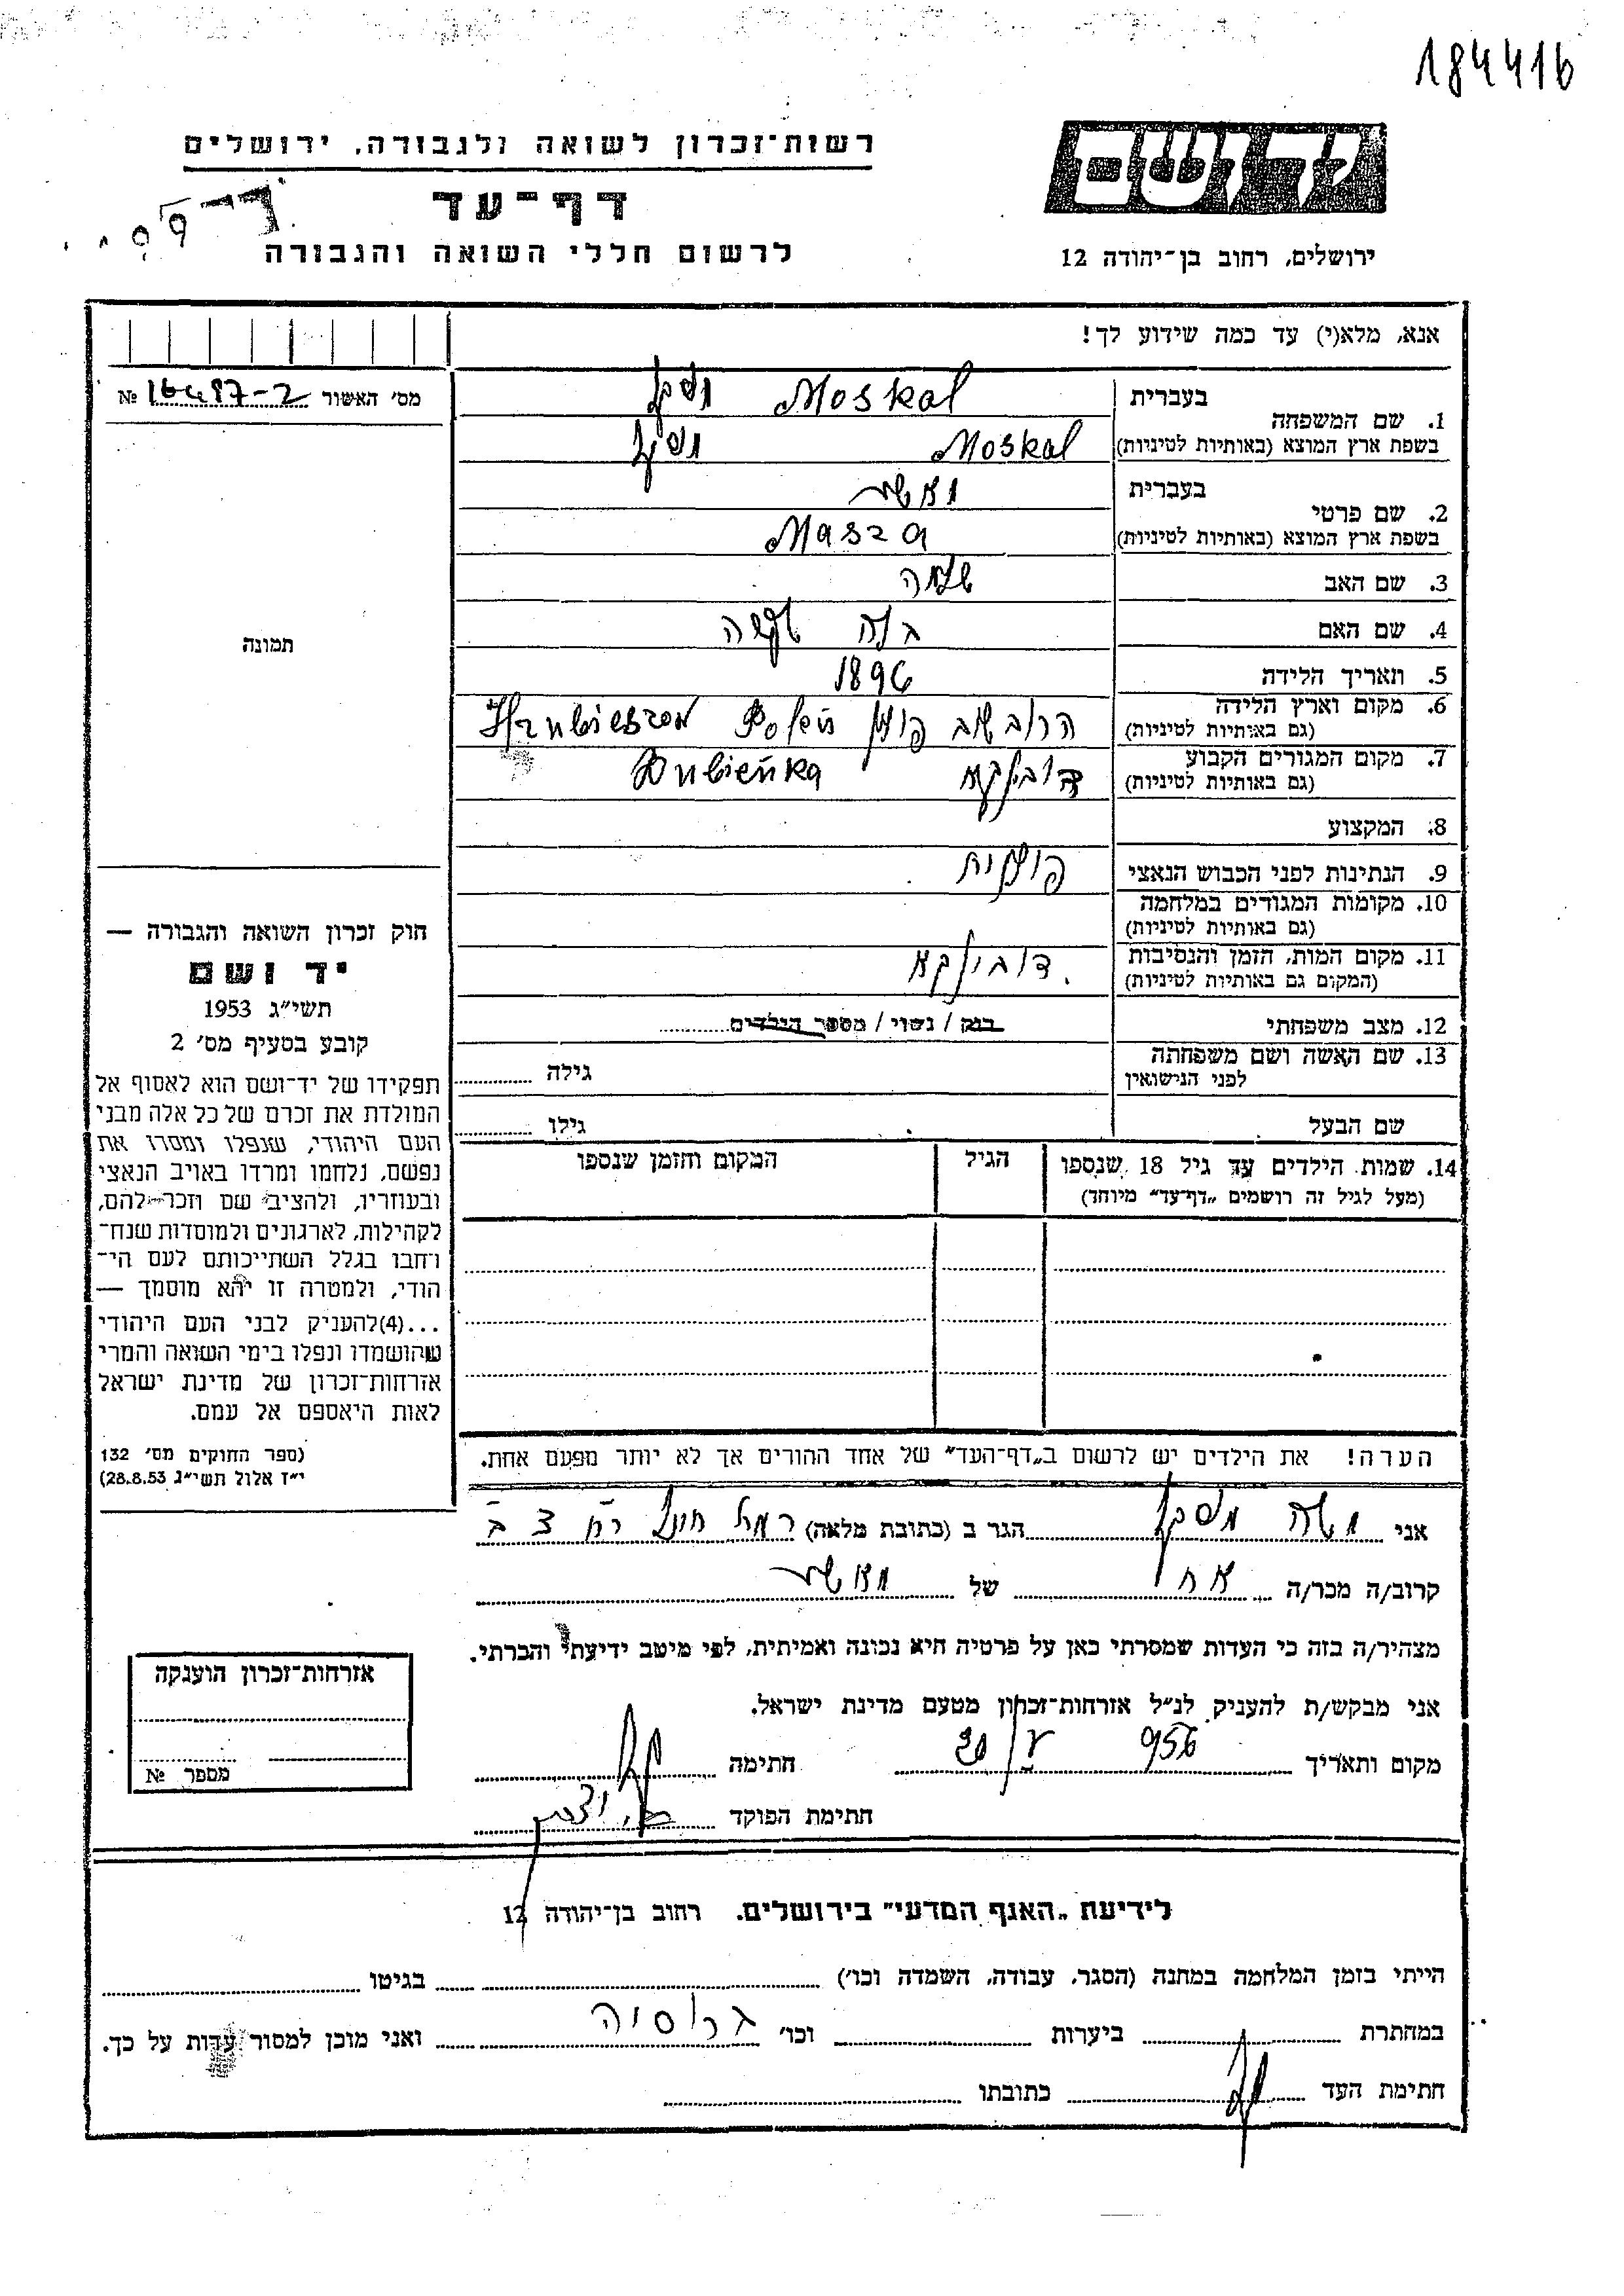 184416
יד ושם
רשות־זכרון לשואה ולגבורה, ירושלים
דף־עד
לרשום חללי השואה והגבורה
ירושלים, רחוב בן־יהודה 12
אנא, מלא(י) עד כמה שידוע לך!
מס׳ האשור № 16497-2
תמונה
בעברית Moskal
1. שם המשפחה
בשפת ארץ המוצא (באותיות לטיניות) Moskal
בעברית
2. שם פרטי
בשפת ארץ המוצא (באותיות לטיניות) Masza
3. שם האב שלמה
4. שם האם
5. תאריך הלידה 1896
6. מקום וארץ הלידה פולין Polen Hrubieszow
(גם באותיות לטיניות)
7. מקום המגורים הקבוע דובינקא Dubieńka
(גם באותיות לטיניות)
8. המקצוע
9. הנתינות לפני הכבוש הנאצי פולנית
10. מקומות המגורים במלחמה
(גם באותיות לטיניות)
11. מקום המות, הזמן והנסיבות דובינקא
(המקום גם באותיות לטיניות)
12. מצב משפחתי רוק / נשוי / מספר הילדים
13. שם האשה ושם משפחתה
לפני הנישואין גילה
שם הבעל גילו
14. שמות הילדים עד גיל 18 שנספו הגיל המקום והזמן שנספו
(מעל לגיל זה רושמים „דף־עד” מיוחד)
חוק זכרון השואה והגבורה —
יד ושם
תשי״ג 1953
קובע בסעיף מס׳ 2
תפקידו של יד־ושם הוא לאסוף אל
המולדת את זכרם של כל אלה מבני
העם היהודי, שנפלו ומסרו את
נפשם, נלחמו ומרדו באויב הנאצי
ובעוזריו, ולהציב שם וזכר להם,
לקהילות, לארגונים ולמוסדות שנח־
רחבו בגלל השתייכותם לעם הי־
הודי, ולמטרה זו יהא מוסמך —
...(4) להעניק לבני העם היהודי
שהושמדו ונפלו בימי השואה והמרי
אזרחות־זכרון של מדינת ישראל
לאות היאספם אל עמם.
(ספר החוקים מס׳ 132
י״ז אלול תשי״ג 28.8.53)
הערה! את הילדים יש לרשום ב„דף־העד” של אחד ההורים אך לא יותר מפעם אחת.
אני משה מוסקל הגר ב (כתובת מלאה)
קרוב/ה מכר/ה אח של
מצהיר/ה בזה כי העדות שמסרתי כאן על פרטיה היא נכונה ואמיתית, לפי מיטב ידיעתי והכרתי.
אני מבקש/ת להעניק לנ״ל אזרחות־זכרון מטעם מדינת ישראל.
מקום ותאריך 956 חתימה
חתימת הפוקד
אזרחות־זכרון הוענקה
מספר №
לידיעת „האגף המדעי” בירושלים. רחוב בן־יהודה 12
הייתי בזמן המלחמה במחנה (הסגר, עבודה, השמדה וכו׳) בגיטו
במחתרת ביערות וכו׳ ברוסיה ואני מוכן למסור עדות על כך.
חתימת העד כתובתו